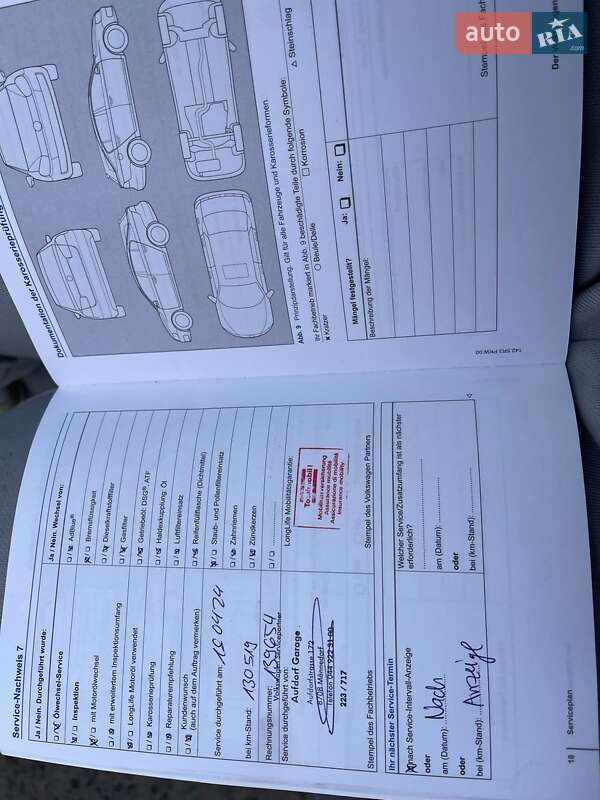 Service-Nachweis 7
Ja / Nein. Durchgeführt wurde:
Ölwechsel-Service
Inspektion
mit Motorölwechsel
mit erweitertem Inspektionsumfang
LongLife Motoröl verwendet
Karosserieprüfung
Reparaturempfehlung
Kundenwunsch
(auch auf dem Auftrag vermerken)
Service durchgeführt am:
bei km-Stand: 130519
Rechnungsnummer: 139654
Service durchgeführt von:
Aufdorf Garage
Aufdorfstrasse 172
8708 Männedorf
223 / 717
Stempel des Fachbetriebs
Ja / Nein. Wechsel von:
AdBlue®
Bremsflüssigkeit
Dieselkraftstofffilter
Gasfilter
Getriebeöl: DSG®, ATF
Haldexkupplung: Öl
Luftfiltereinsatz
Reifenfüllflasche (Dichtmittel)
Staub- und Pollenfiltereinsatz
Zahnriemen
Zündkerzen
LongLife Mobilitätsgarantie:
Totalmobil!
Mobilitätsversicherung
Assurance mobilité
Assicurazione di mobilità
Insurance mobility
Stempel des Volkswagen Partners
Ihr nächster Service-Termin
nach Service-Intervall-Anzeige
oder
am (Datum): Nach
oder
bei (km-Stand): Anzeige
Welcher Service/Zusatzumfang ist als nächster
erforderlich?
am (Datum):
oder
bei (km-Stand):
18 Serviceplan
Dokumentation der Karosserieprüfung
Abb. 9 Prinzipdarstellung. Gilt für alle Fahrzeuge und Karosserieformen.
Ihr Fachbetrieb markiert in Abb. 9 beschädigte Teile durch folgende Symbole:
Kratzer
Beule/Delle
Korrosion
Steinschlag
Mängel festgestellt? Ja: Nein:
Beschreibung der Mängel:
142.5R3.PKW.00
auto RIA.com